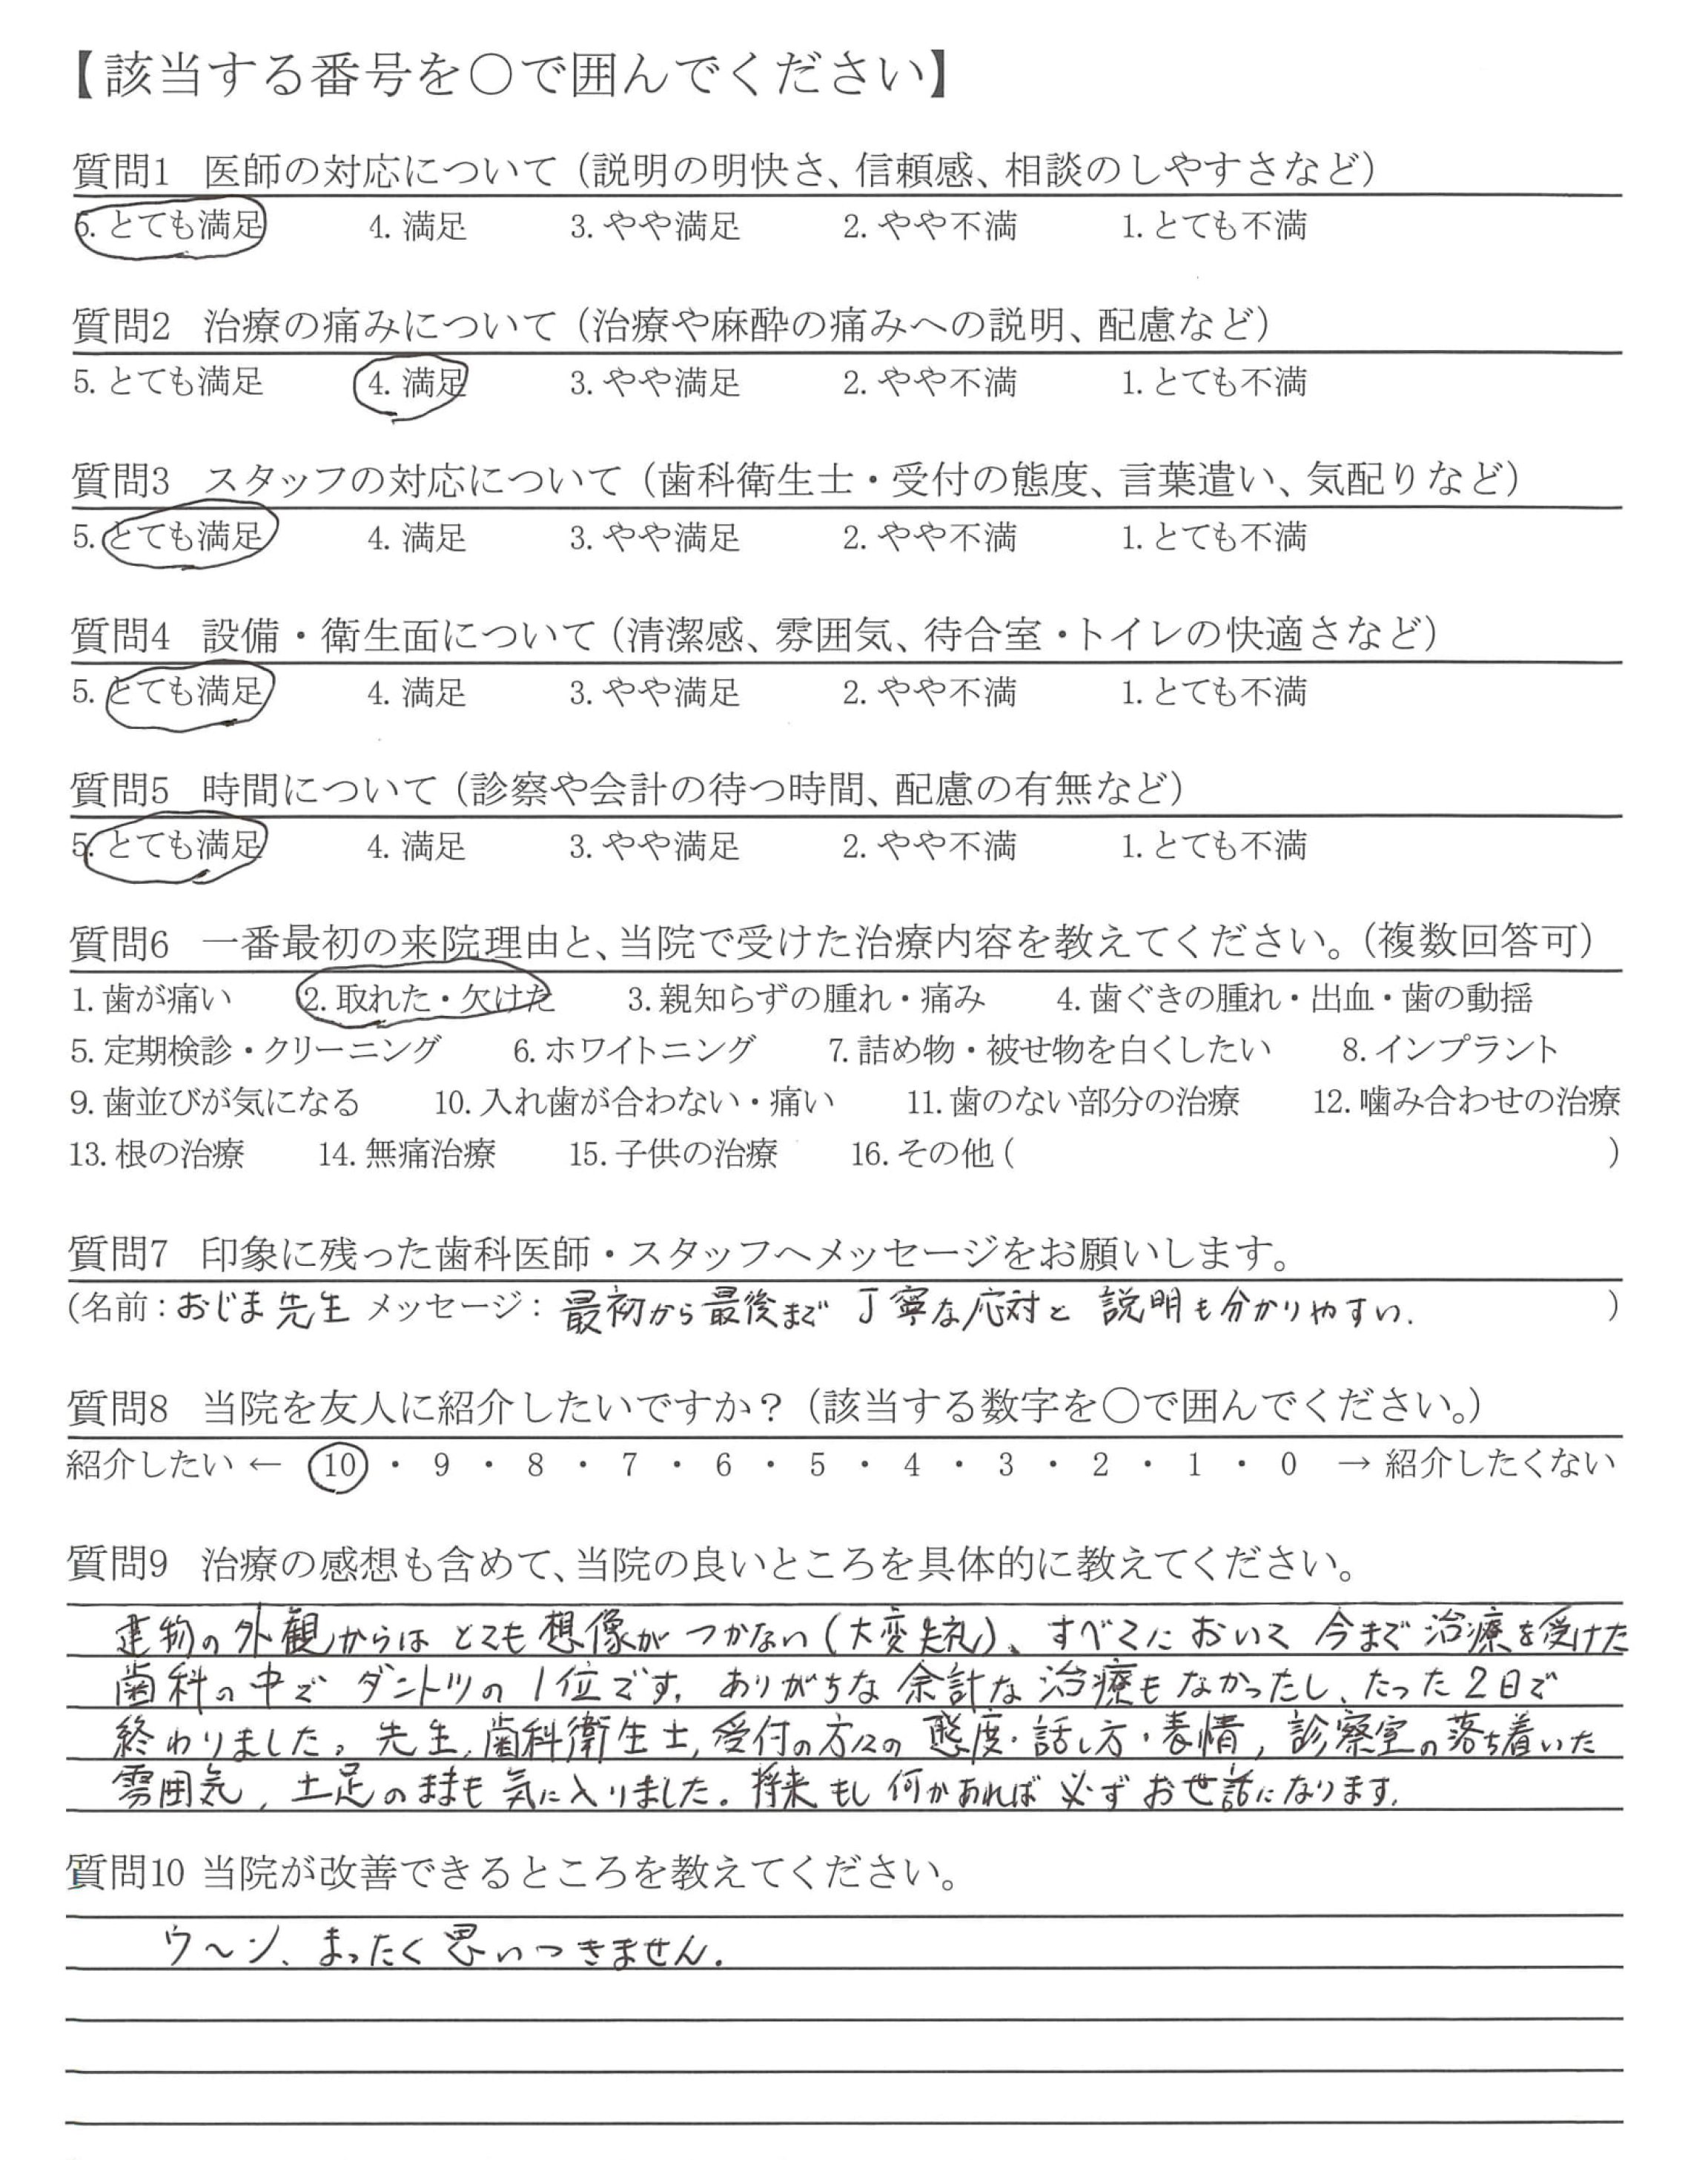 【該当する番号を〇で囲んでください】
質問1 医師の対応について（説明の明快さ、信頼感、相談のしやすさなど）
5. とても満足 4. 満足 3. やや満足 2. やや不満 1. とても不満
質問2 治療の痛みについて（治療や麻酔の痛みへの説明、配慮など）
5. とても満足 4. 満足 3. やや満足 2. やや不満 1. とても不満
質問3 スタッフの対応について（歯科衛生士・受付の態度、言葉遣い、気配りなど）
5. とても満足 4. 満足 3. やや満足 2. やや不満 1. とても不満
質問4 設備・衛生面について（清潔感、雰囲気、待合室・トイレの快適さなど）
5. とても満足 4. 満足 3. やや満足 2. やや不満 1. とても不満
質問5 時間について（診察や会計の待つ時間、配慮の有無など）
5. とても満足 4. 満足 3. やや満足 2. やや不満 1. とても不満
質問6 一番最初の来院理由と、当院で受けた治療内容を教えてください。（複数回答可）
1. 歯が痛い 2. 取れた・欠けた 3. 親知らずの腫れ・痛み 4. 歯ぐきの腫れ・出血・歯の動揺
5. 定期検診・クリーニング 6. ホワイトニング 7. 詰め物・被せ物を白くしたい 8. インプラント
9. 歯並びが気になる 10. 入れ歯が合わない・痛い 11. 歯のない部分の治療 12. 噛み合わせの治療
13. 根の治療 14. 無痛治療 15. 子供の治療 16. その他（ ）
質問7 印象に残った歯科医師・スタッフへメッセージをお願いします。
（名前：おじま先生 メッセージ：最初から最後まで 丁寧な応対と 説明も分かりやすい. ）
質問8 当院を友人に紹介したいですか？（該当する数字を〇で囲んでください。）
紹介したい ← 10 ・ 9 ・ 8 ・ 7 ・ 6 ・ 5 ・ 4 ・ 3 ・ 2 ・ 1 ・ 0 → 紹介したくない
質問9 治療の感想も含めて、当院の良いところを具体的に教えてください。
建物の外観からは とても想像が つかない（大変失礼）、すべてにおいて 今まで治療を受けた
歯科の中で ダントツの 1位です. ありがちな 余計な治療もなかったし、たった2日で
終わりました。先生, 歯科衛生士, 受付の方々の 態度・話し方・表情, 診察室の落ち着いた
雰囲気, 土足のままも 気に入りました. 将来もし 何かあれば 必ず お世話になります.
質問10 当院が改善できるところを教えてください。
ウ～ン、まったく思いつきません.